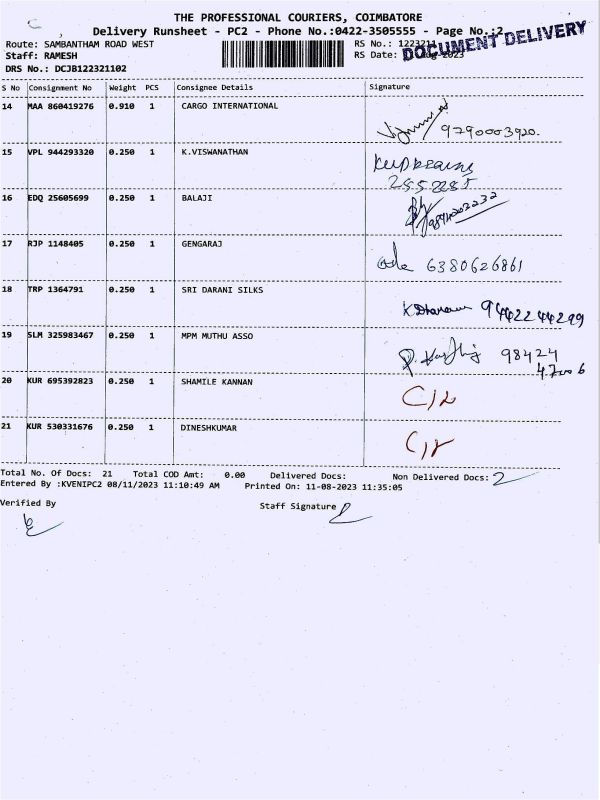 THE PROFESSIONAL COURIERS, COIMBATORE
Delivery Runsheet - PC2 - Phone No.:0422-3505555 - Page No.:2
DOCUMENT DELIVERY
Route: SAMBANTHAM ROAD WEST RS No.: 1223211
Staff: RAMESH RS Date: 2023
DRS No.: DCJB122321102
S No Consignment No Weight PCS Consignee Details Signature
14 MAA 860419276 0.910 1 CARGO INTERNATIONAL
9790003920.
15 VPL 944293320 0.250 1 K.VISWANATHAN
2552285
16 EDQ 25605699 0.250 1 BALAJI
17 RJP 1148405 0.250 1 GENGARAJ
6380626861
18 TRP 1364791 0.250 1 SRI DARANI SILKS
9442244299
19 SLM 325983467 0.250 1 MPM MUTHU ASSO
98424
20 KUR 695392823 0.250 1 SHAMILE KANNAN
21 KUR 530331676 0.250 1 DINESHKUMAR
Total No. Of Docs: 21 Total COD Amt: 0.00 Delivered Docs: Non Delivered Docs: 2
Entered By :KVENIPC2 08/11/2023 11:10:49 AM Printed On: 11-08-2023 11:35:05
Verified By Staff Signature